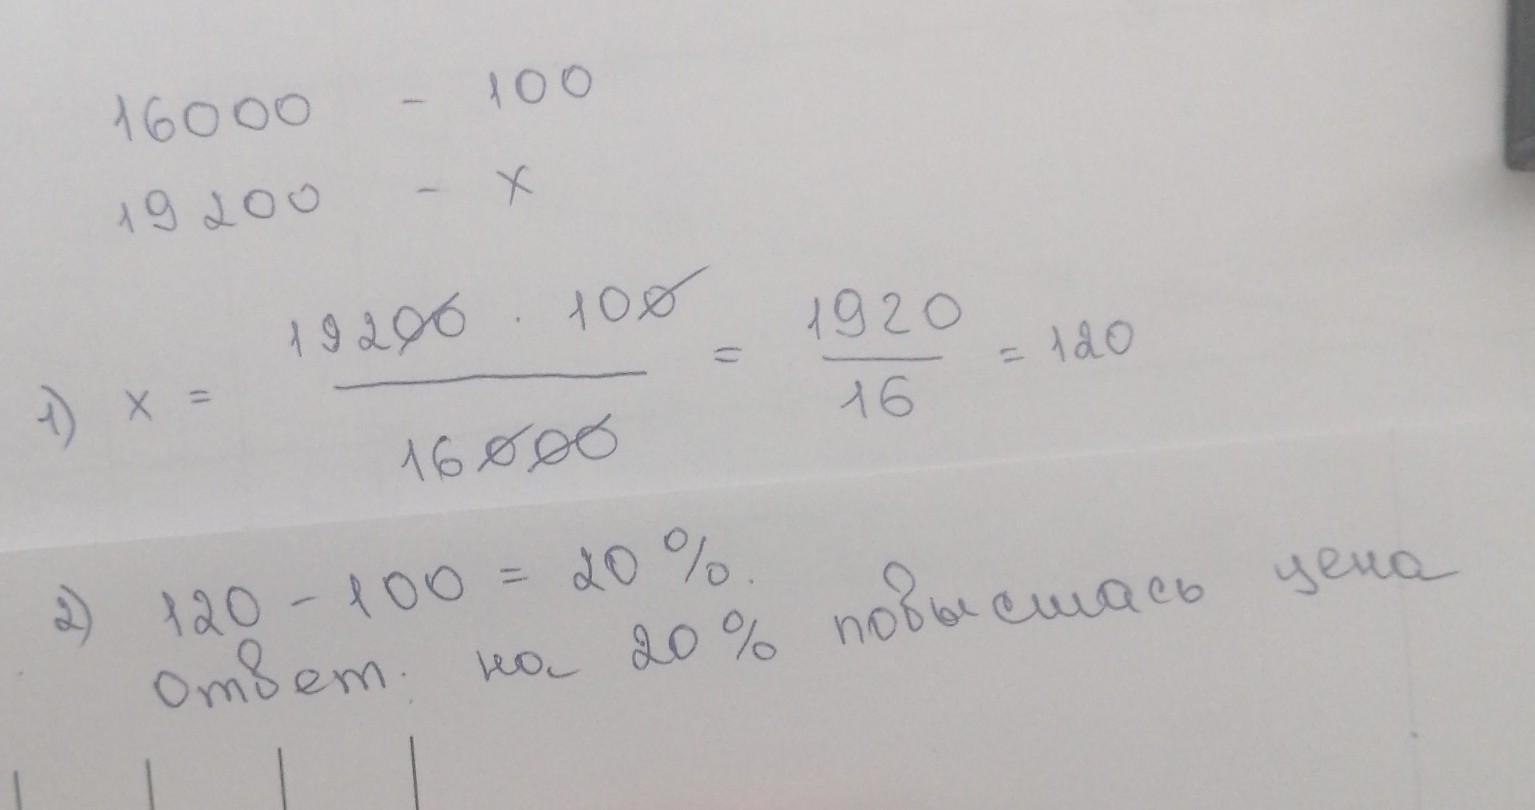 16000 - 100
19200 - x
1) x = 19200 · 100 / 16000 = 1920 / 16 = 120
2) 120 - 100 = 20 %.
Ответ: на 20 % повысилась цена